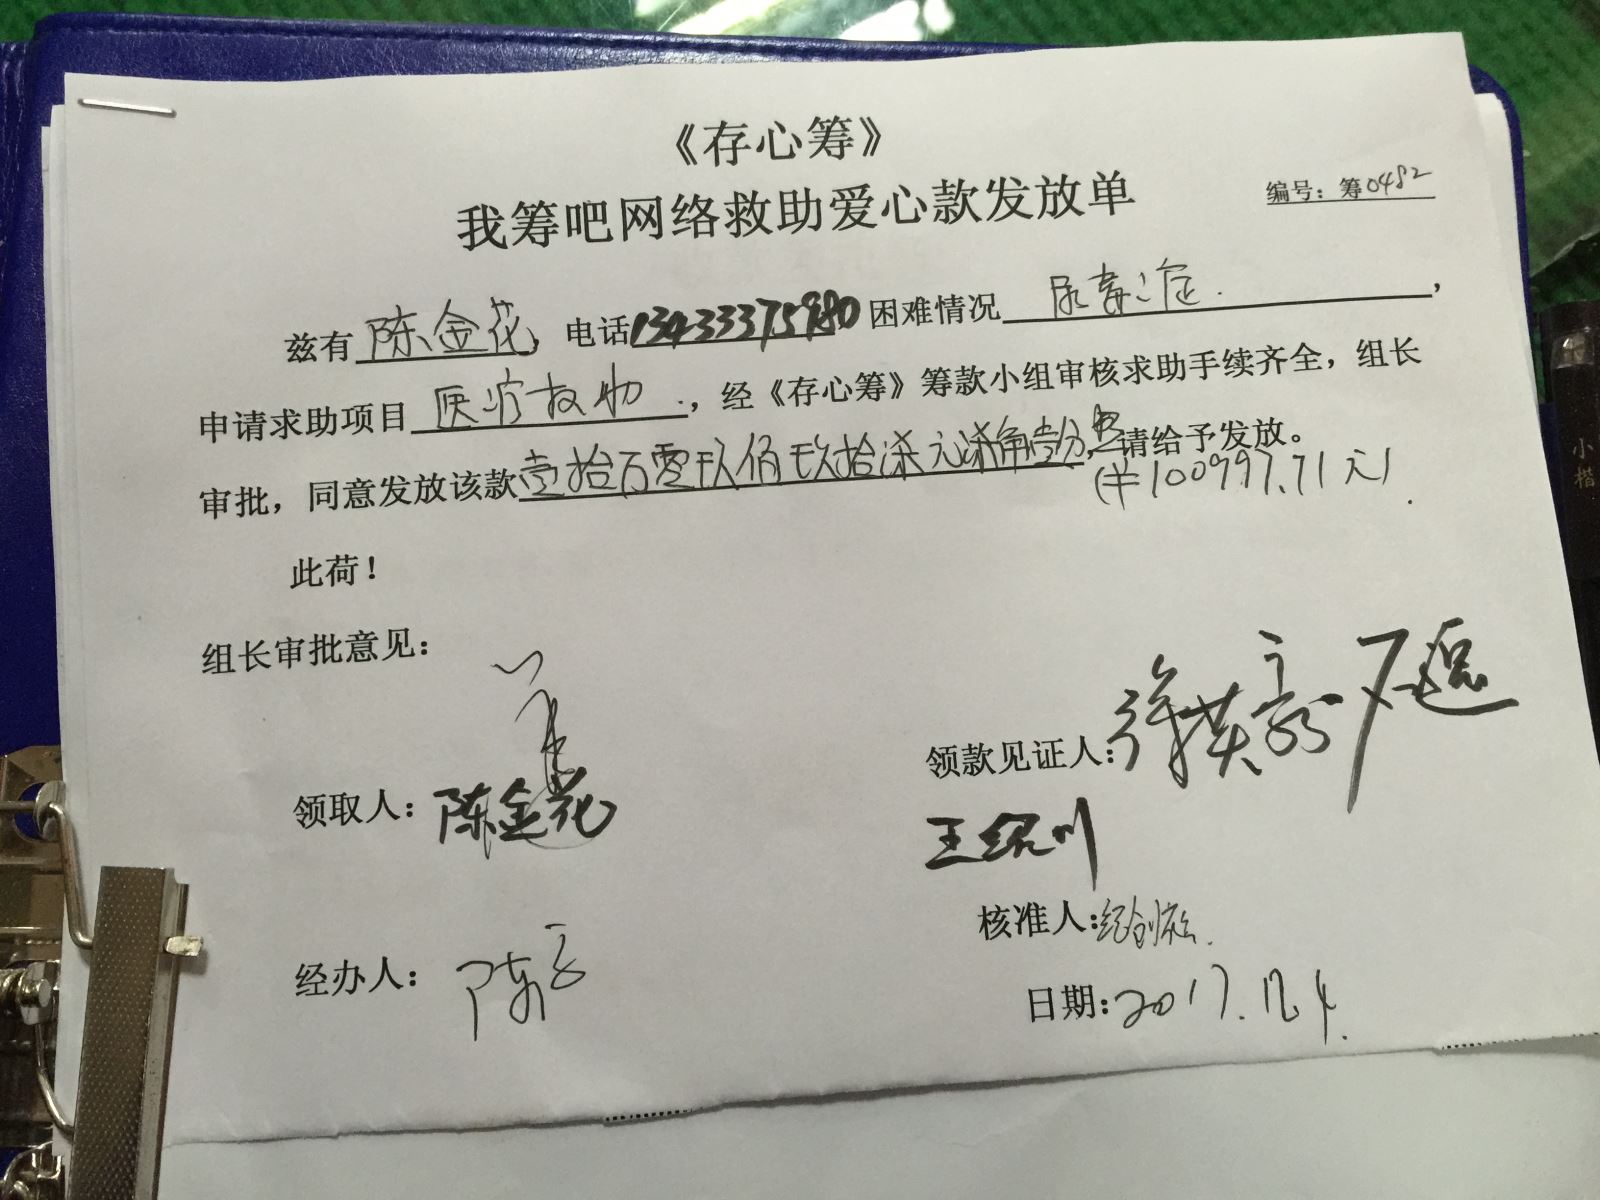 《存心筹》
我筹吧网络救助爱心款发放单
编号：筹0482
兹有陈金花，电话13433375980困难情况尿毒症.，
申请求助项目医疗救助.，经《存心筹》筹款小组审核求助手续齐全，组长
审批，同意发放该款壹拾万零玖佰玖拾柒元柒角壹分，请给予发放。
(¥100997.71元).
此荷！
组长审批意见：
领款见证人：
领取人：陈金花
王绍川
核准人：
经办人：陈
日期：2017.12.4.
小楷